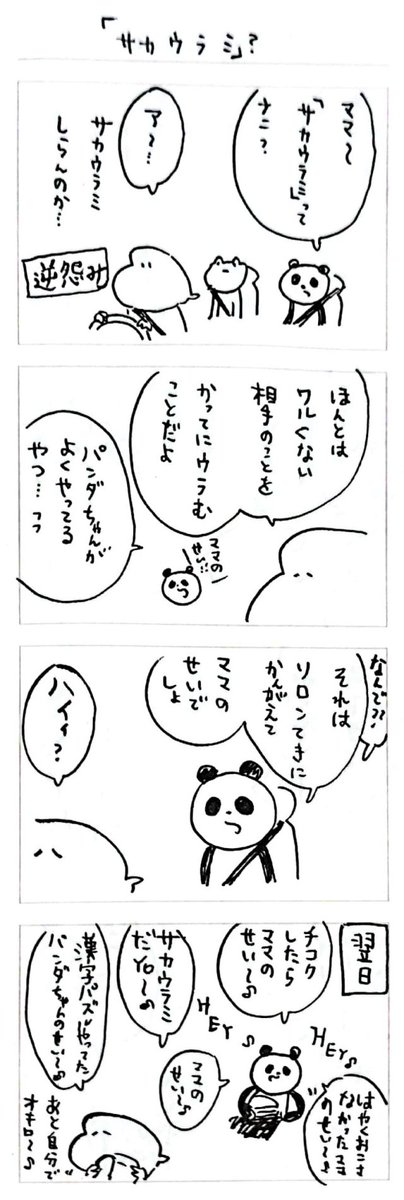 「サカウラミ」?
ママ〜
「サカウラミ」って
ナニ?
ア〜…
サカウラミ
しらんのか…
逆怨み
ほんとは
ワルくない
相手のことを
かってにウラむ
ことだよ
ママの
せい!!
パンダちゃんが
よくやってる
やつ…っっ
なんで??
それは
ソロンてきに
かんがえて
ママの
せいで
しょ
ハイィ?
翌日
チコク
したら
ママの
せい〜♪
HEY♪
HEY♪
サカウラミ
だYO〜♪
はやくおこさ
なかったママ
のせい〜♪
ママの
せい〜♪
漢字パズルやってた
パンダちゃんのせい〜♪
あと自分で
オキロ〜♪